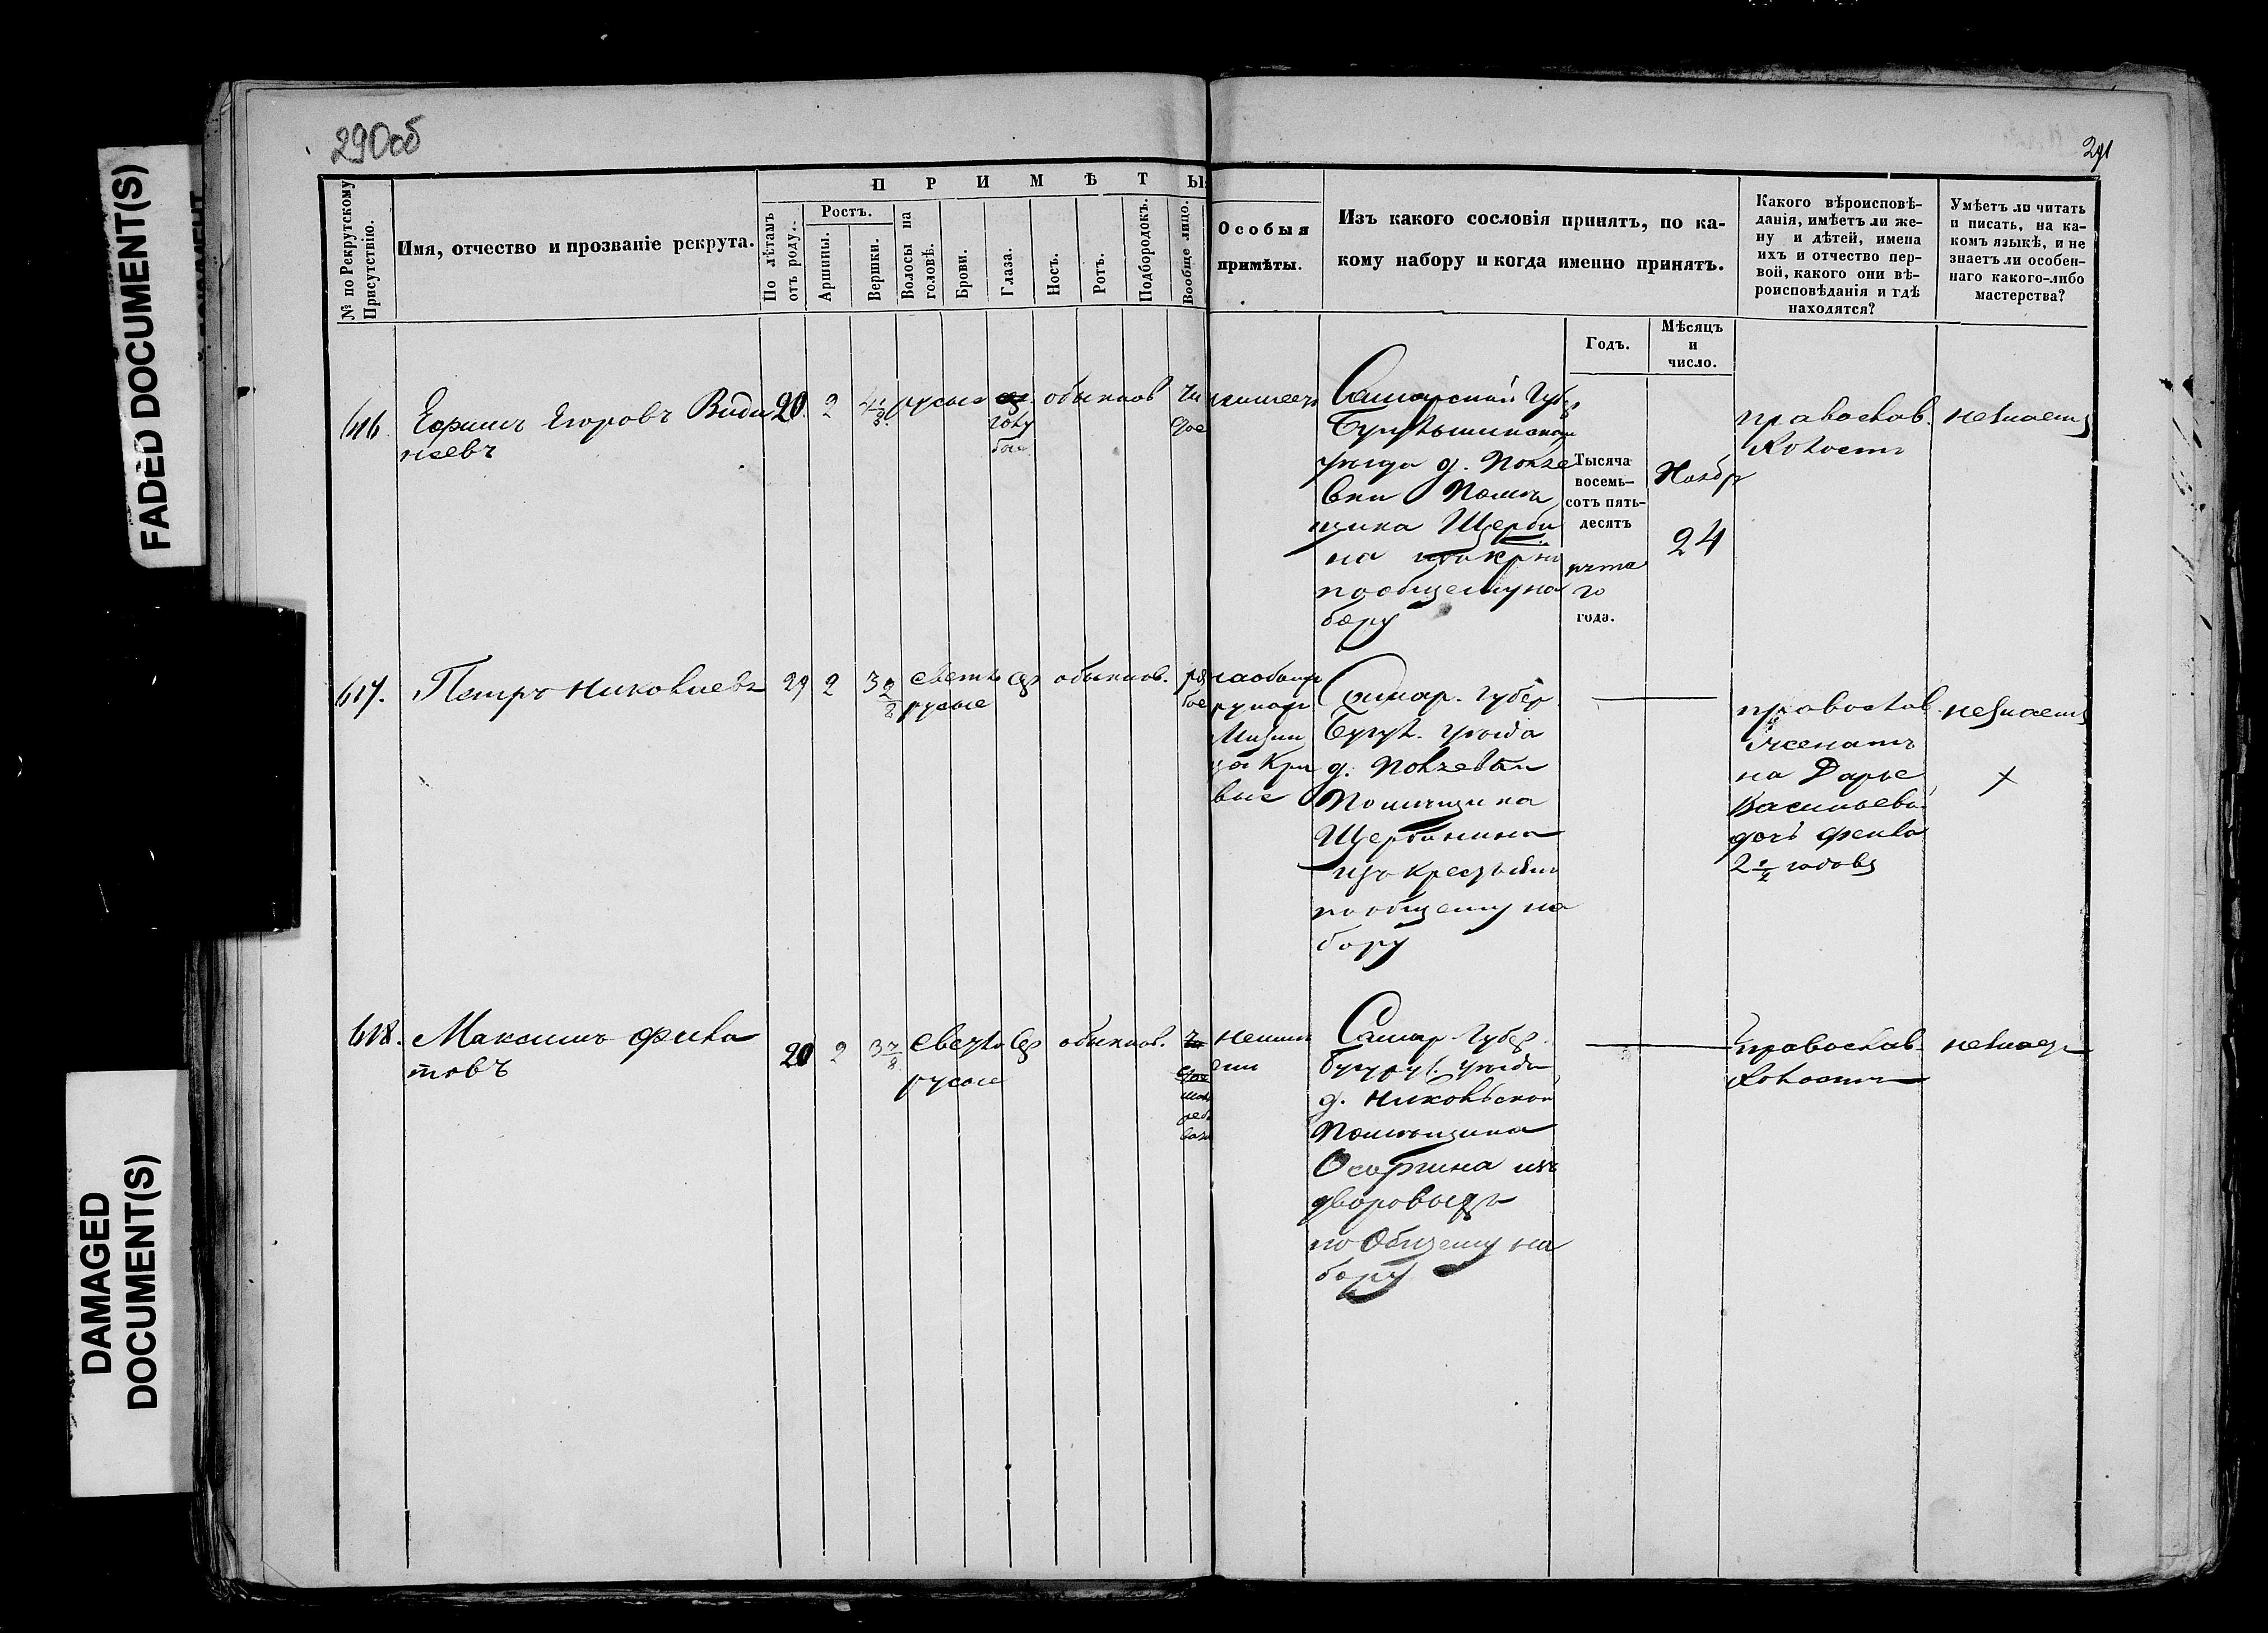 FADED DOCUMENT(S)
DAMAGED
DOCUMENT(S)
290об
291
№ по Рекрутскому
Присутствію.
Имя, отчество и прозваніе рекрута.
ПРИМѢТЫ
По лѣтамъ
отъ роду.
Ростъ.
Аршины.
Вершки.
Волосы на
головѣ.
Брови.
Глаза.
Носъ.
Ротъ.
Подбородокъ.
Вообще лицо.
Особыя
примѣты.
Изъ какого сословія принятъ, по ка-
кому набору и когда именно принятъ.
Годъ.
Мѣсяцъ
и
число.
Какого вѣроисповѣ-
данія, имѣетъ ли же-
ну и дѣтей, имена
ихъ и отчество пер-
вой, какого они вѣ-
роисповѣданія и гдѣ
находятся?
Умѣетъ ли читать
и писать, на ка-
комъ языкѣ, и не
знаетъ ли особен-
наго какого-либо
мастерства?
616
Ефимъ Егоровъ Види
неевъ
20
2
русые
голу
бые
обыкнов
чи
стое
Самарской Губер
уезда д. Ползе
вки Помѣ
щика Щерби
на
по общему на
бору
Тысяча
восемь-
сотъ пять-
десятъ
пята
го
года.
Ноябр
24
православ.
холостъ
незнаетъ
617.
Петръ Николаевъ
29
2
3 2/8
светло
русые
сер
обыкнов.
ря
бое
на обоихъ
рукахъ
Мизин
цы Кри
вые
Самар. губер.
Бугул. уезда
д. Ползевки
Помѣщика
Щербинина
изъ крестьян
по общему на
бору
православ.
женатъ
на Дарье
Васильевой
дочь Фекла
2 1/2 годовъ
незнаетъ
618.
Максимъ Фила
товъ
20
2
3 7/8
светло
русые
сер
обыкнов.
неим
Самар. Губер.
Бугурус. уезда
д. Никольской
Помѣщика
Осоргина изъ
дворовыхъ
по Общему на
бору
православ.
холостъ
незнаетъ